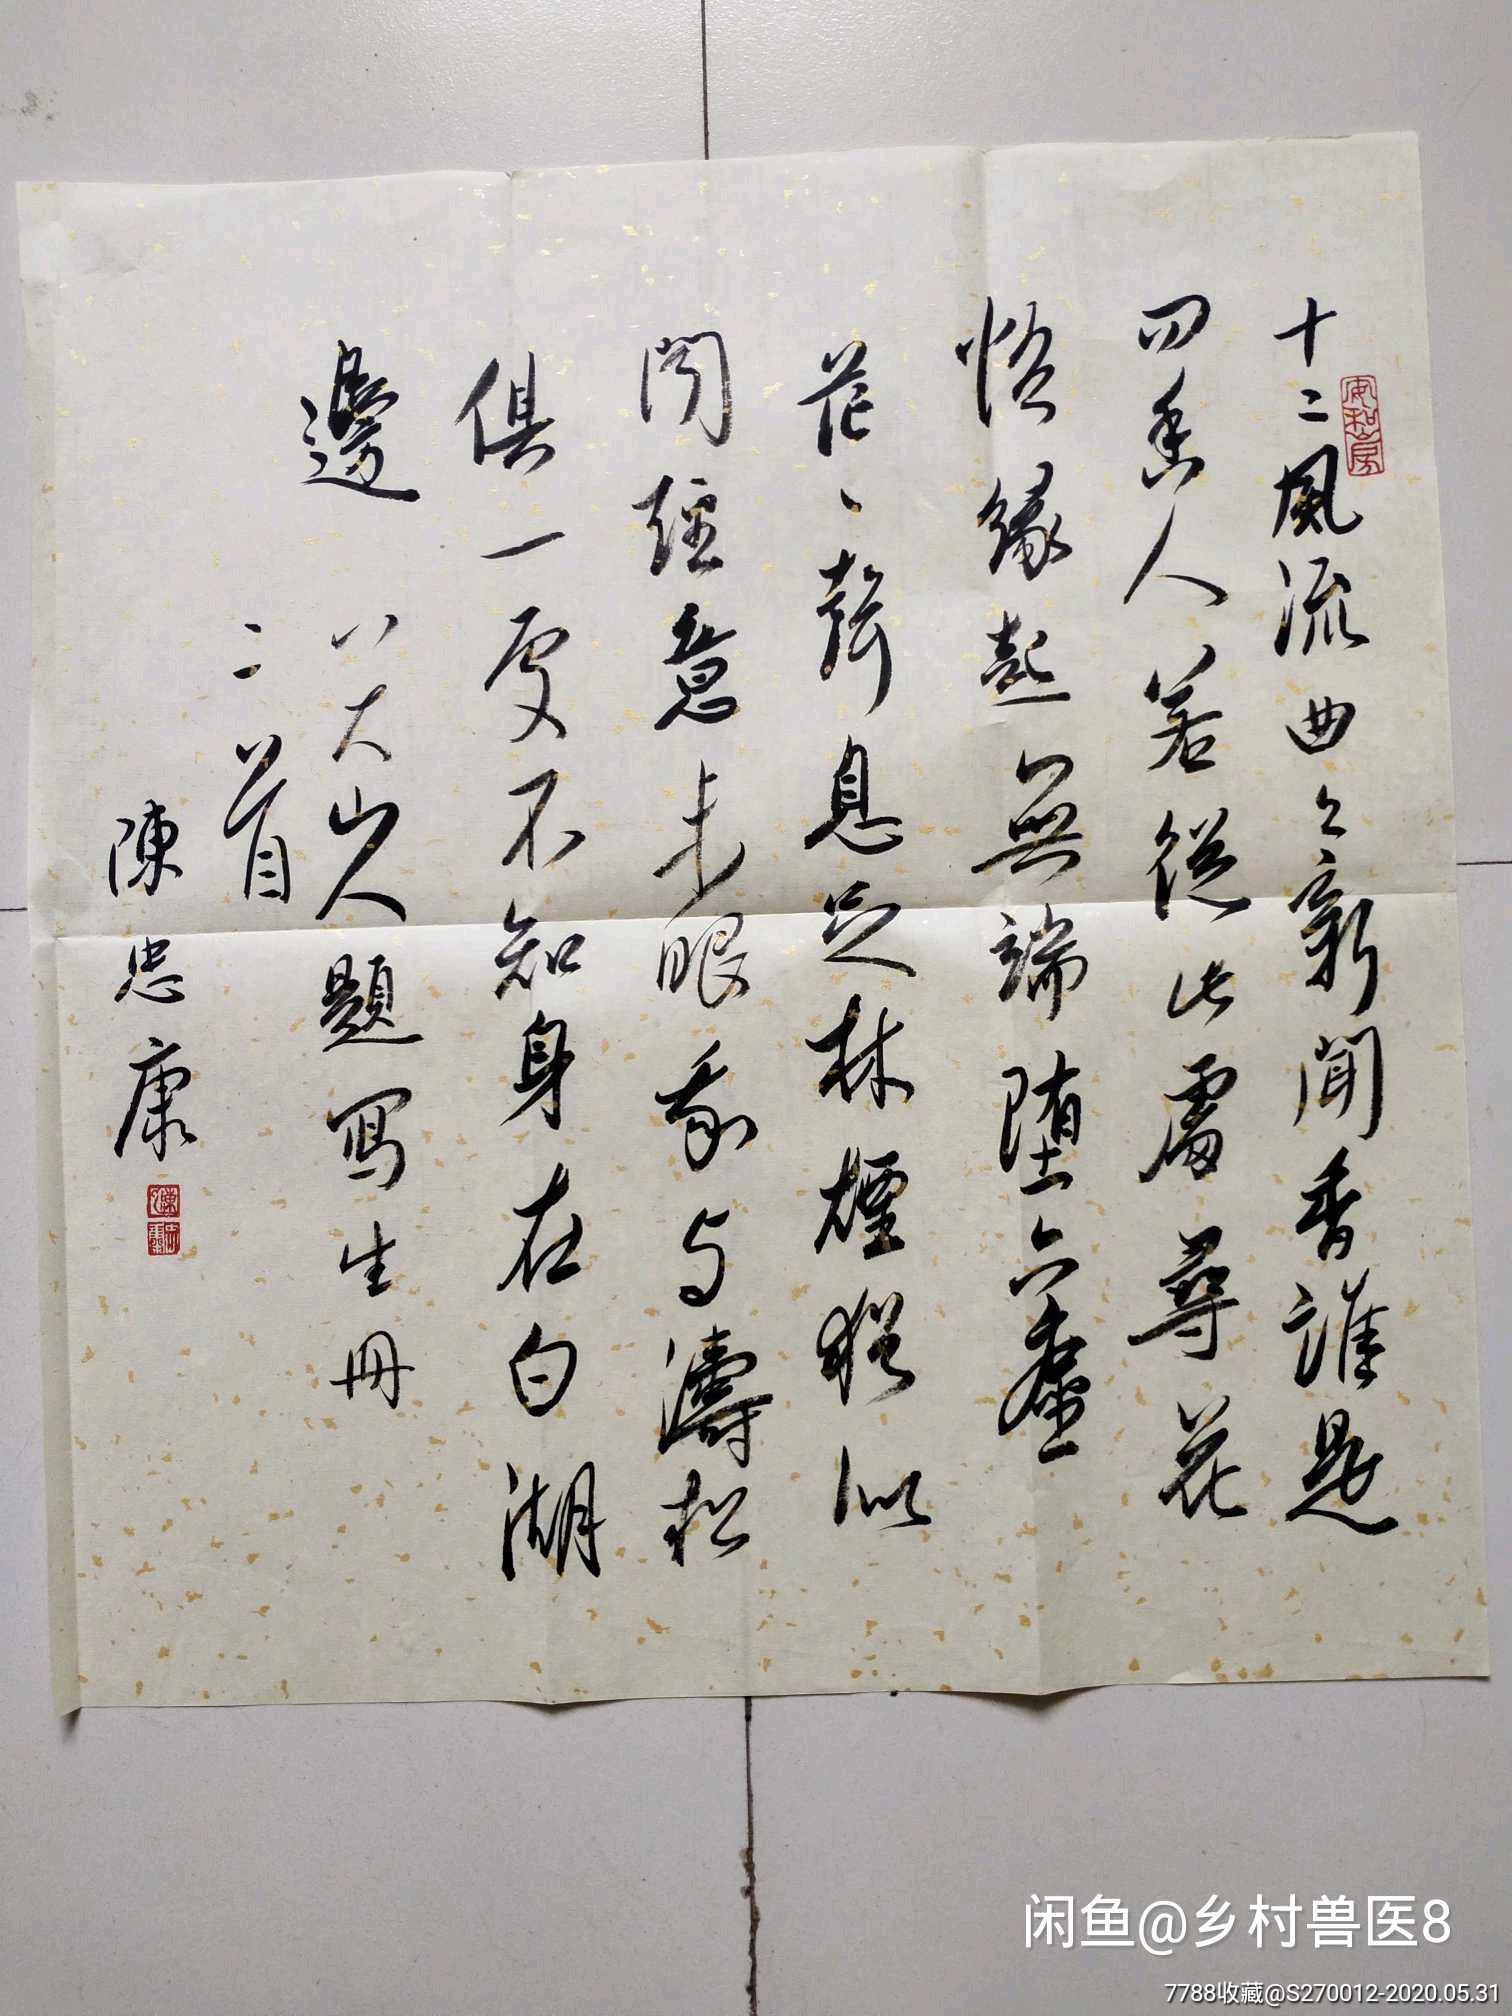 十二風流曲々新聞香誰是
四香人若從此處尋花
悟緣起無端墮六塵
茫丶聲息乏林煙猶似
聞經意未眠我与濤松
俱一處不知身在白湖
邊 八大山人題寫生冊
二首
陳忠康
闲鱼@乡村兽医8
7788收藏@S270012-2020.05.31